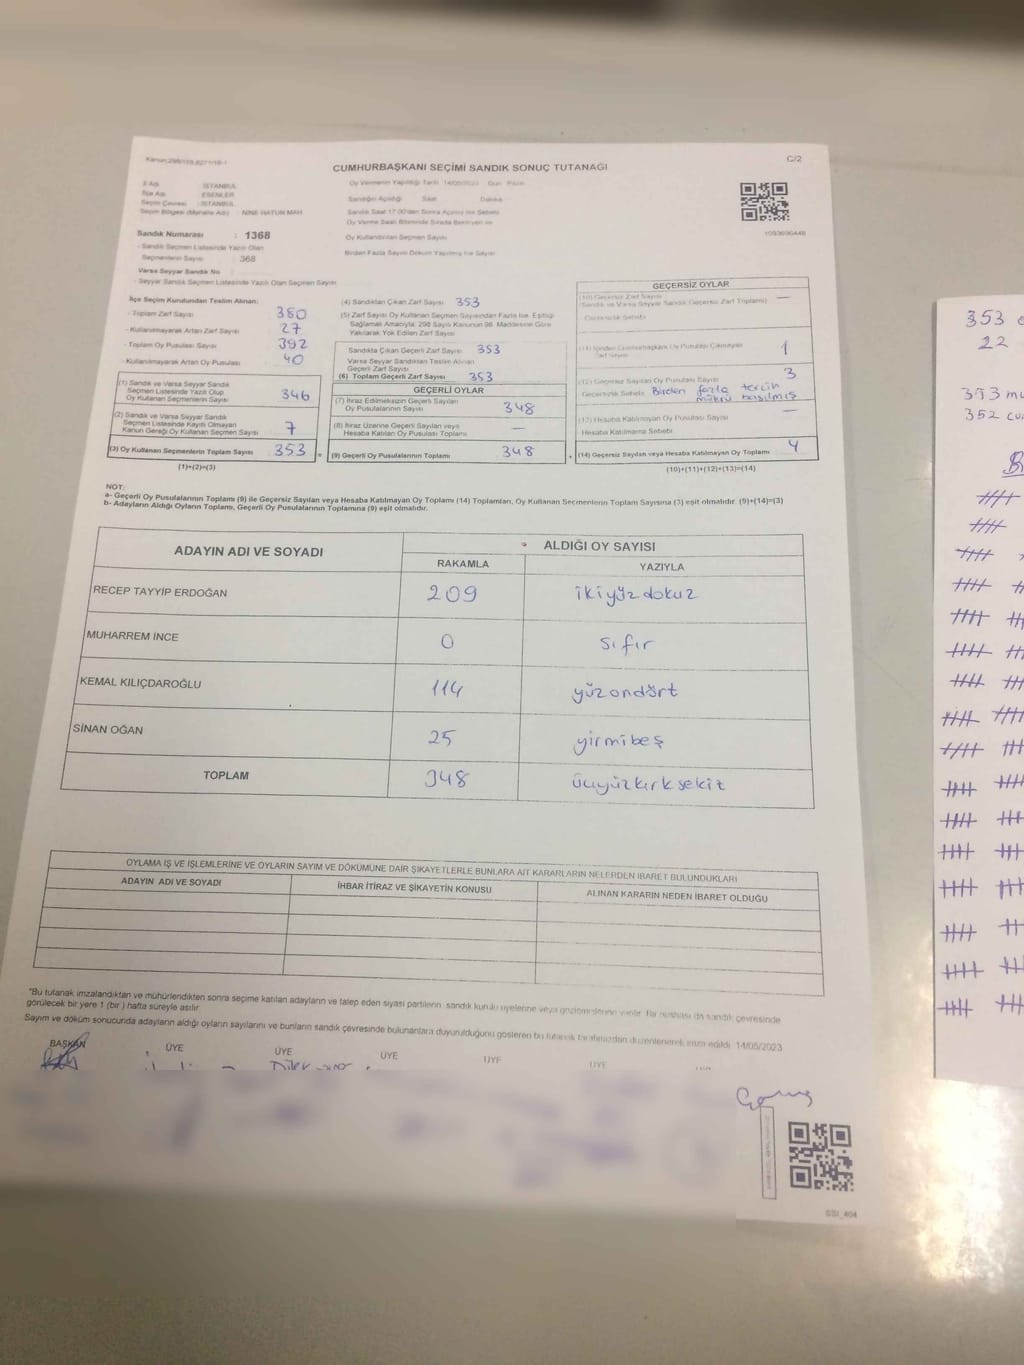 Kanun:298/105,6271/18-1
C/2
CUMHURBAŞKANI SEÇİMİ SANDIK SONUÇ TUTANAĞI
İl Adı : İSTANBUL
İlçe Adı : ESENLER
Seçim Çevresi : İSTANBUL
Seçim Bölgesi (Mahalle Adı) : NİNE HATUN MAH.
Oy Vermenin Yapıldığı Tarih 14/05/2023 Gün Pazar
Sandığın Açıldığı Saat Dakika
Sandık Saat 17.00'den Sonra Açılmış İse Sebebi
Oy Verme Saati Bitiminde Sırada Bekleyen ve
Oy Kullandırılan Seçmen Sayısı
Birden Fazla Sayım Döküm Yapılmış İse Sayısı
Sandık Numarası : 1368
- Sandık Seçmen Listesinde Yazılı Olan
Seçmenlerin Sayısı : 368
Varsa Seyyar Sandık No
- Seyyar Sandık Seçmen Listesinde Yazılı Olan Seçmen Sayısı
İlçe Seçim Kurulundan Teslim Alınan:
- Toplam Zarf Sayısı 380
- Kullanılmayarak Artan Zarf Sayısı 27
- Toplam Oy Pusulası Sayısı 392
- Kullanılmayarak Artan Oy Pusulası 40
(1) Sandık ve Varsa Seyyar Sandık
Seçmen Listesinde Yazılı Olup
Oy Kullanan Seçmenlerin Sayısı 346
(2) Sandık ve Varsa Seyyar Sandık
Seçmen Listesinde Kayıtlı Olmayan
Kanun Gereği Oy Kullanan Seçmen Sayısı 7
(3) Oy Kullanan Seçmenlerin Toplam Sayısı 353 =
(1)+(2)=(3)
(4) Sandıktan Çıkan Zarf Sayısı 353
(5) Zarf Sayısı Oy Kullanan Seçmen Sayısından Fazla İse, Eşitliği
Sağlamak Amacıyla; 298 Sayılı Kanunun 98. Maddesine Göre
Yakılarak Yok Edilen Zarf Sayısı
Sandıkta Çıkan Geçerli Zarf Sayısı 353
Varsa Seyyar Sandıktan Teslim Alınan
Geçerli Zarf Sayısı
(6) Toplam Geçerli Zarf Sayısı 353
GEÇERLİ OYLAR
(7) İtiraz Edilmeksizin Geçerli Sayılan
Oy Pusulalarının Sayısı 348
(8) İtiraz Üzerine Geçerli Sayılan veya
Hesaba Katılan Oy Pusulası Toplamı —
(9) Geçerli Oy Pusulalarının Toplamı 348 +
GEÇERSİZ OYLAR
(10) Geçersiz Zarf Sayısı —
(Sandık ve Varsa Seyyar Sandık Geçersiz Zarf Toplamı)
Geçersizlik Sebebi
(11) İçinden Cumhurbaşkanı Oy Pusulası Çıkmayan
Zarf Sayısı 1
(12) Geçersiz Sayılan Oy Pusulası Sayısı 3
Geçersizlik Sebebi Birden fazla tercih
mührü basılmış
(13) Hesaba Katılmayan Oy Pusulası Sayısı —
Hesaba Katılmama Sebebi
(14) Geçersiz Sayılan veya Hesaba Katılmayan Oy Toplamı 4
(10)+(11)+(12)+(13)=(14)
NOT:
a- Geçerli Oy Pusulalarının Toplamı (9) ile Geçersiz Sayılan veya Hesaba Katılmayan Oy Toplamı (14) Toplamları, Oy Kullanan Seçmenlerin Toplam Sayısına (3) eşit olmalıdır. (9)+(14)=(3)
b- Adayların Aldığı Oyların Toplamı, Geçerli Oy Pusulalarının Toplamına (9) eşit olmalıdır.
ADAYIN ADI VE SOYADI
ALDIĞI OY SAYISI
RAKAMLA YAZIYLA
RECEP TAYYİP ERDOĞAN 209 ikiyüzdokuz
MUHARREM İNCE 0 sıfır
KEMAL KILIÇDAROĞLU 114 yüzondört
SİNAN OĞAN 25 yirmibeş
TOPLAM 348 üçyüzkırksekiz
OYLAMA İŞ VE İŞLEMLERİNE VE OYLARIN SAYIM VE DÖKÜMÜNE DAİR ŞİKAYETLERLE BUNLARA AİT KARARLARIN NELERDEN İBARET BULUNDUKLARI
ADAYIN ADI VE SOYADI
İHBAR İTİRAZ VE ŞİKAYETİN KONUSU
ALINAN KARARIN NEDEN İBARET OLDUĞU
"Bu tutanak imzalandıktan ve mühürlendikten sonra seçime katılan adayların ve talep eden siyasi partilerin sandık kurulu üyelerine veya gözlemcilerine verilir. Bir nüshası da sandık çevresinde
görülecek bir yere 1 (bir) hafta süreyle asılır.
Sayım ve döküm sonucunda adayların aldığı oyların sayılarını ve bunların sandık çevresinde bulunanlara duyurulduğunu gösteren bu tutanak tarafımızdan düzenlenerek imza edildi. 14/05/2023
BAŞKAN ÜYE ÜYE ÜYE ÜYE ÜYE
SSI_404
353
22
353 mu
352 cu